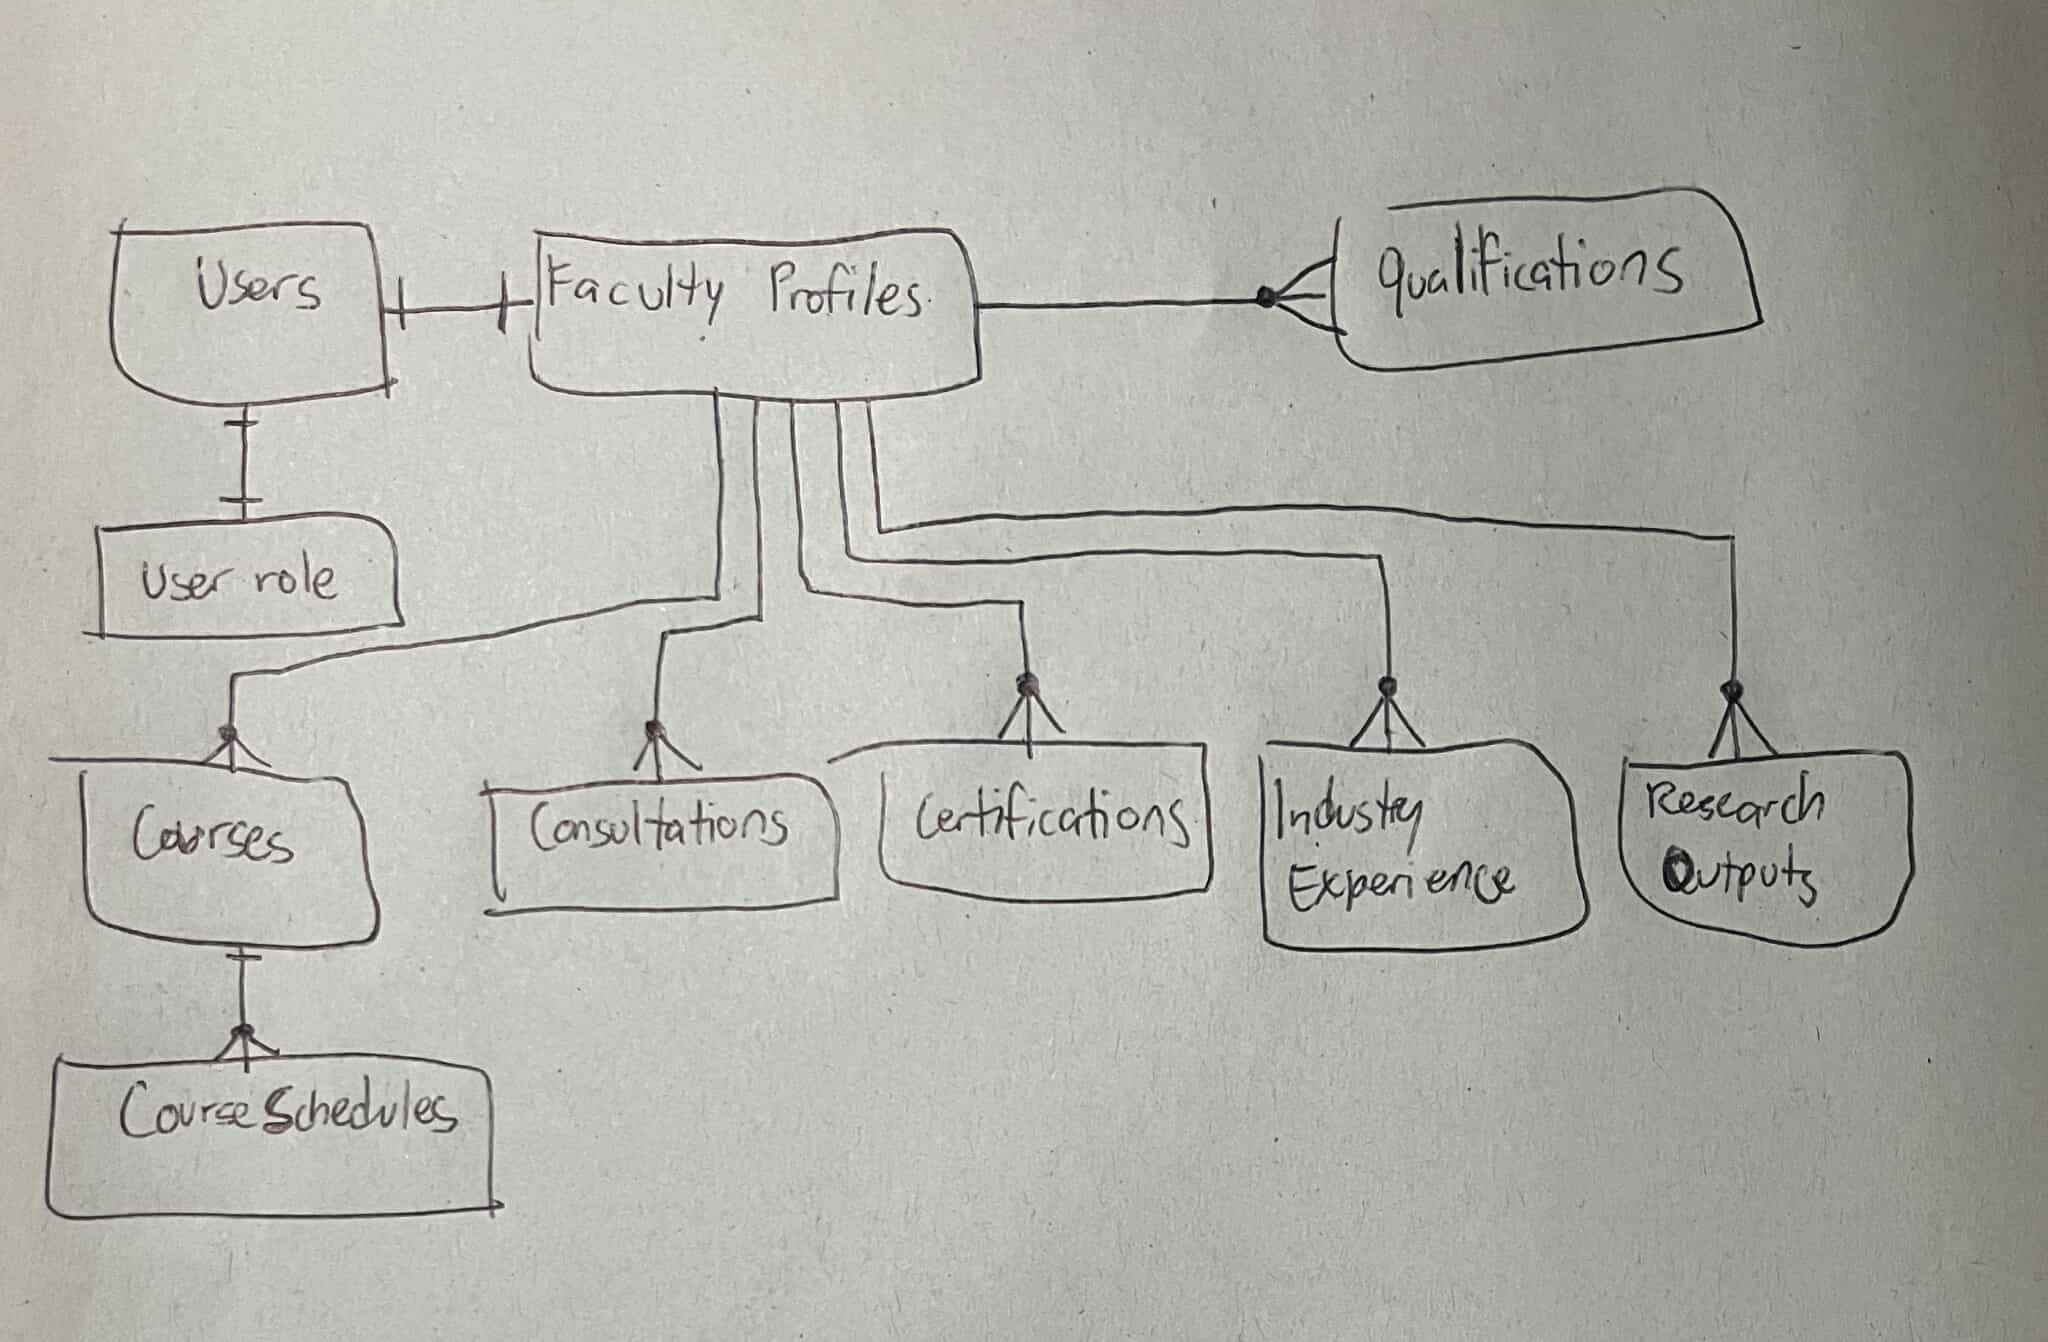 Users
Faculty Profiles
Qualifications
User role
Courses
Consultations
Certifications
Industry
Experience
Research
Outputs
Course Schedules